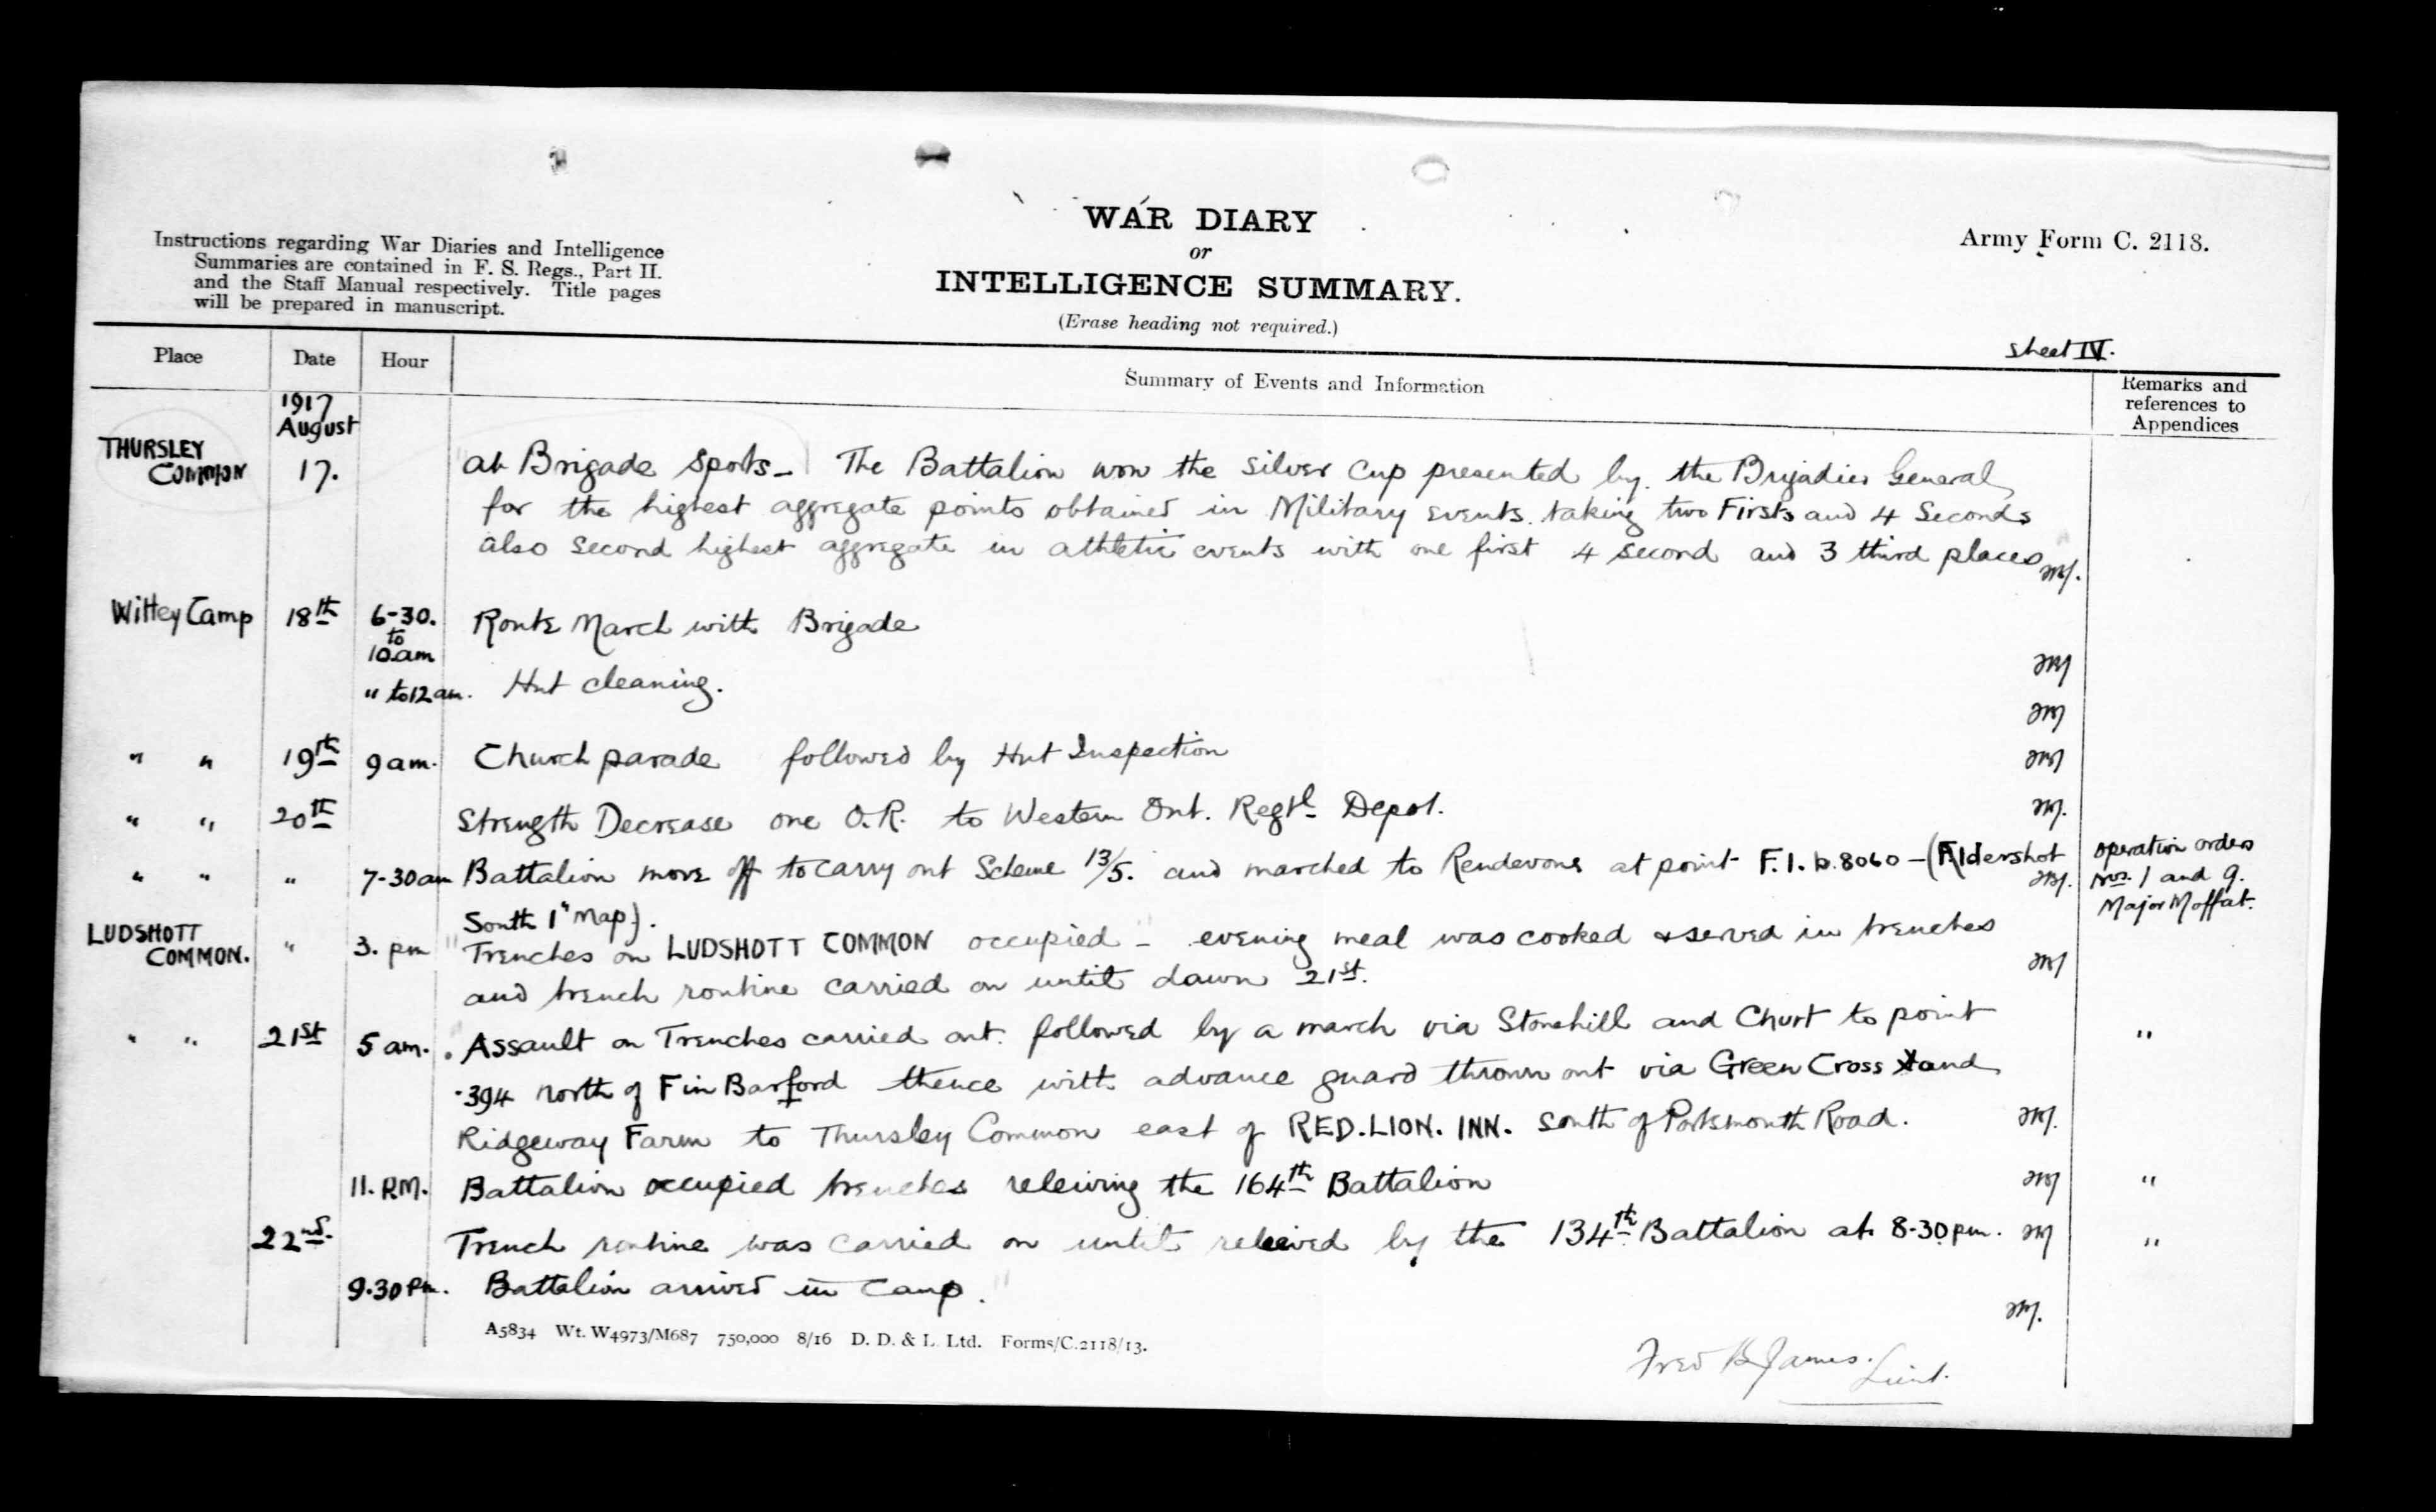 WAR DIARY
or
INTELLIGENCE SUMMARY.
(Erase heading not required.)
Instructions regarding War Diaries and Intelligence
Summaries are contained in F. S. Regs., Part II.
and the Staff Manual respectively. Title pages
will be prepared in manuscript.
Army Form C. 2118.
Sheet IV.
Place Date Hour Summary of Events and Information Remarks and
references to
Appendices
1917
August
THURSLEY
COMMON 17. at Brigade Sports - The Battalion won the silver cup presented by the Brigadier General
for the highest aggregate points obtained in Military events. taking two Firsts and 4 Seconds
also second highest aggregate in athletic events with one first 4 second and 3 third places
Witley Camp 18th 6-30. Route March with Brigade
to
10.am
" to 12 am. Hut cleaning.
" " 19th 9 am. Church parade followed by Hut Inspection
" " 20th Strength Decrease one O.R. to Western Ont. Regtl Depot.
" " " 7-30 am Battalion move off to carry out Scheme 13/5. and marched to Rendevous at point F.1.b.8060 - (Aldershot operation orders
South 1" Map). Nos. 1 and 9.
Major Moffat.
LUDSHOTT
COMMON. " 3. pm "Trenches on LUDSHOTT COMMON occupied - evening meal was cooked & served in trenches
and trench routine carried on until dawn 21st.
" " 21st 5 am. Assault on Trenches carried out. followed by a march via Stonehill and Churt to point "
·394 north of F in Barford thence with advance guard thrown out via Green Cross and
Ridgeway Farm to Thursley Common east of RED.LION. INN. South of Portsmouth Road.
11. P.M. Battalion occupied trenches releiving the 164th Battalion "
22nd. Trench routine was carried on until releived by the 134th Battalion at 8-30 pm. "
9.30 Pm. Battalion arrived in Camp."
A5834 Wt. W4973/M687 750,000 8/16 D. D. & L. Ltd. Forms/C.2118/13.
Fred B James. Lieut.